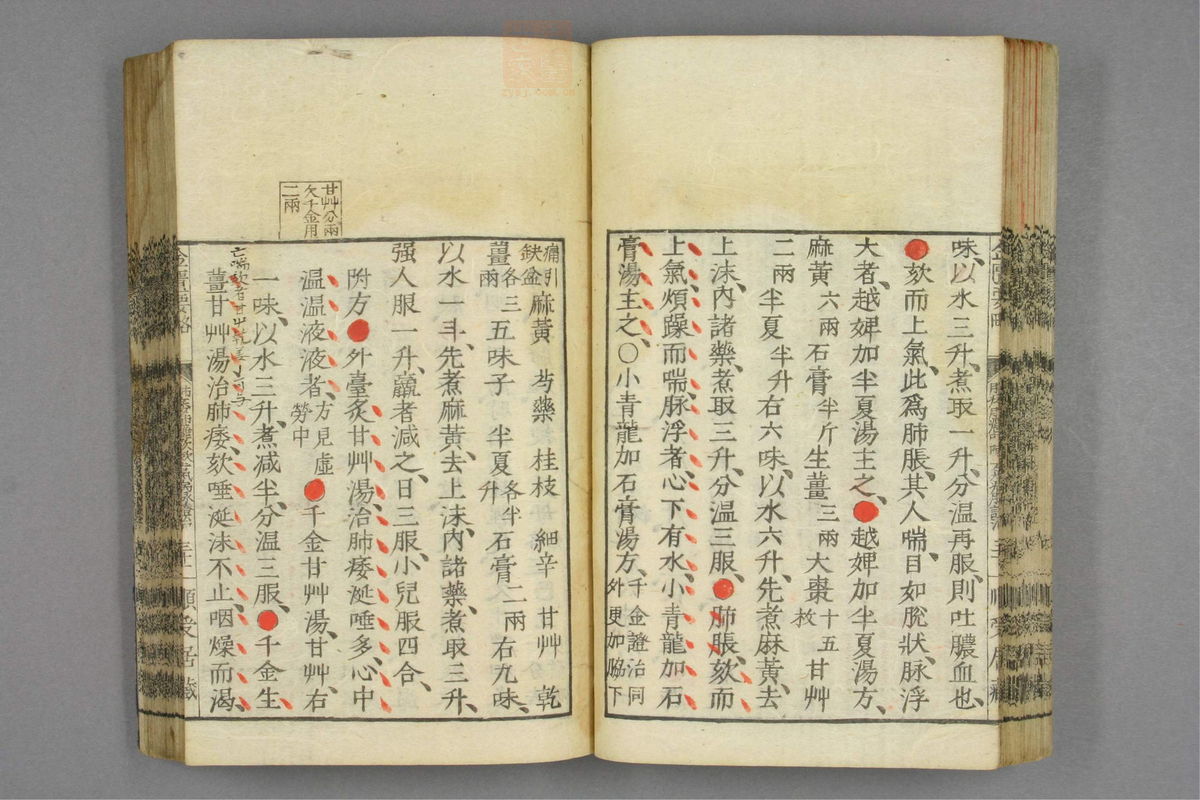 味、以水三升、煮取一升、分溫再服、則吐膿血也、
欬而上氣、此爲肺脹、其人喘、目如脫狀、脉浮
大者、越婢加半夏湯主之、越婢加半夏湯方、
麻黃六兩石膏半斤生薑三兩大棗十五枚甘艸
二兩半夏半升右六味、以水六升、先煮麻黃、去
上沫、內諸藥、煮取三升、分溫三服、肺脹、欬而
上氣、煩躁而喘、脉浮者、心下有水、小青龍加石
膏湯主之、○小青龍加石膏湯方、千金證治同外更加脇下
痛引缺盆麻黃 芍藥 桂枝 細辛 甘艸 乾
薑各三兩五味子 半夏各半升石膏二兩右九味、
以水一斗、先煮麻黃、去上沫、內諸藥、煮取三升、
强人服一升、羸者減之、日三服、小兒服四合、
附方外臺炙甘艸湯、治肺痿涎唾多、心中
溫溫液液者、方見虛勞中千金甘艸湯、甘艸、右
一味、以水三升、煮減半、分溫三服、千金生
薑甘艸湯治肺痿、欬唾涎沫不止、咽燥而渴、
甘艸分兩
欠千金用
二兩